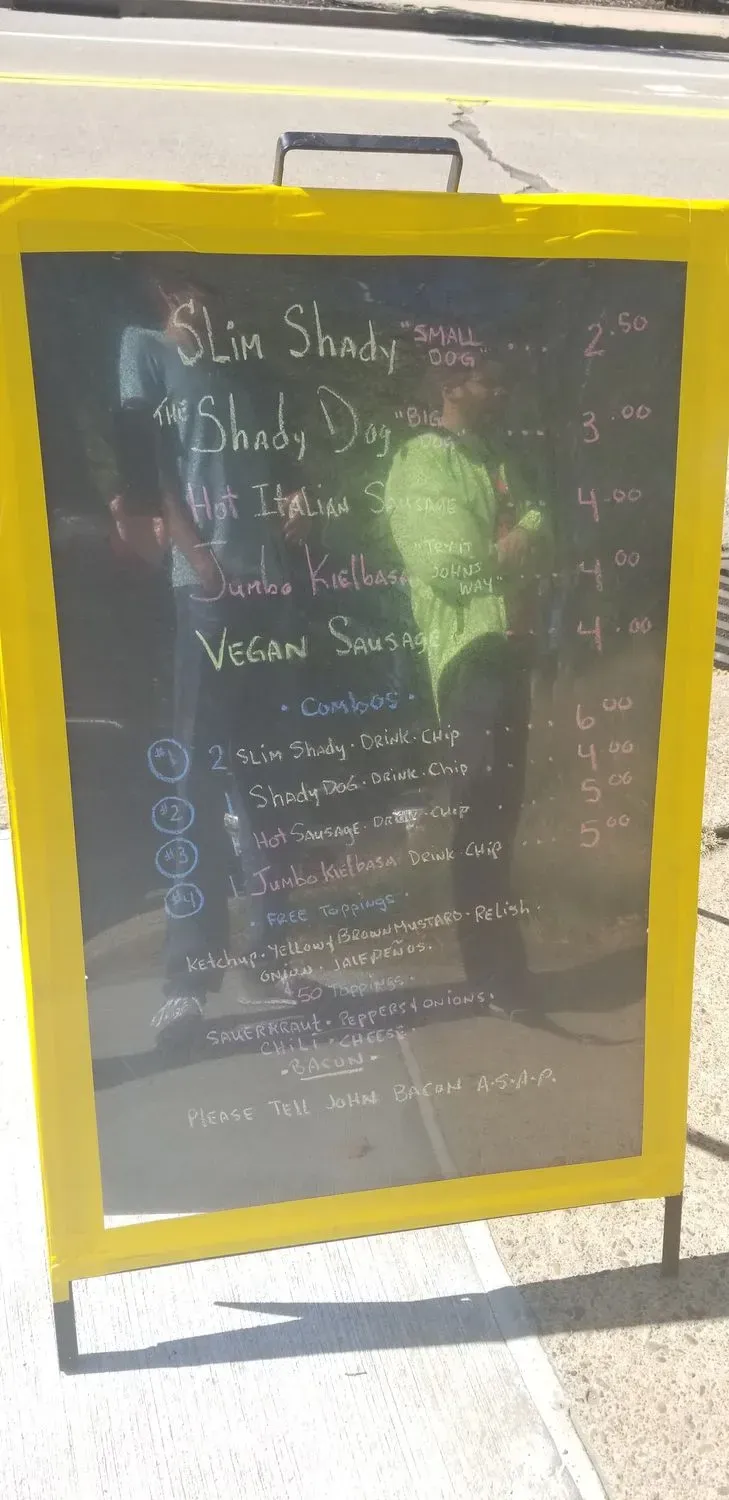 SLim Shady "SMALL DOG" .... 2.50
THE Shady Dog "BIG DOG" .... 3.00
Hot Italian Sausage .... 4.00
Jumbo Kielbasa "TRY IT JOHNS WAY" .... 4.00
VEGAN SAUSAGE .... 4.00
· COMBOS ·
#1 2 SLIM Shady · DRINK · CHip .... 6.00
#2 1 Shady DOG · DRINK · Chip .... 4.00
#3 1 Hot SAUSAGE · DRINK · CHIP .... 5.00
#4 1 Jumbo Kielbasa DRINK · CHIP .... 5.00
· FREE Toppings ·
Ketchup · Yellow & BROWN MUSTARD · Relish ·
ONION · JALEPEÑOS ·
50 Toppings ·
SAUERKRAUt · PEPPERS & ONIONS ·
CHILI · CHEESE ·
· BACON ·
PLEASE TELL JOHN BACON A.S.A.P.